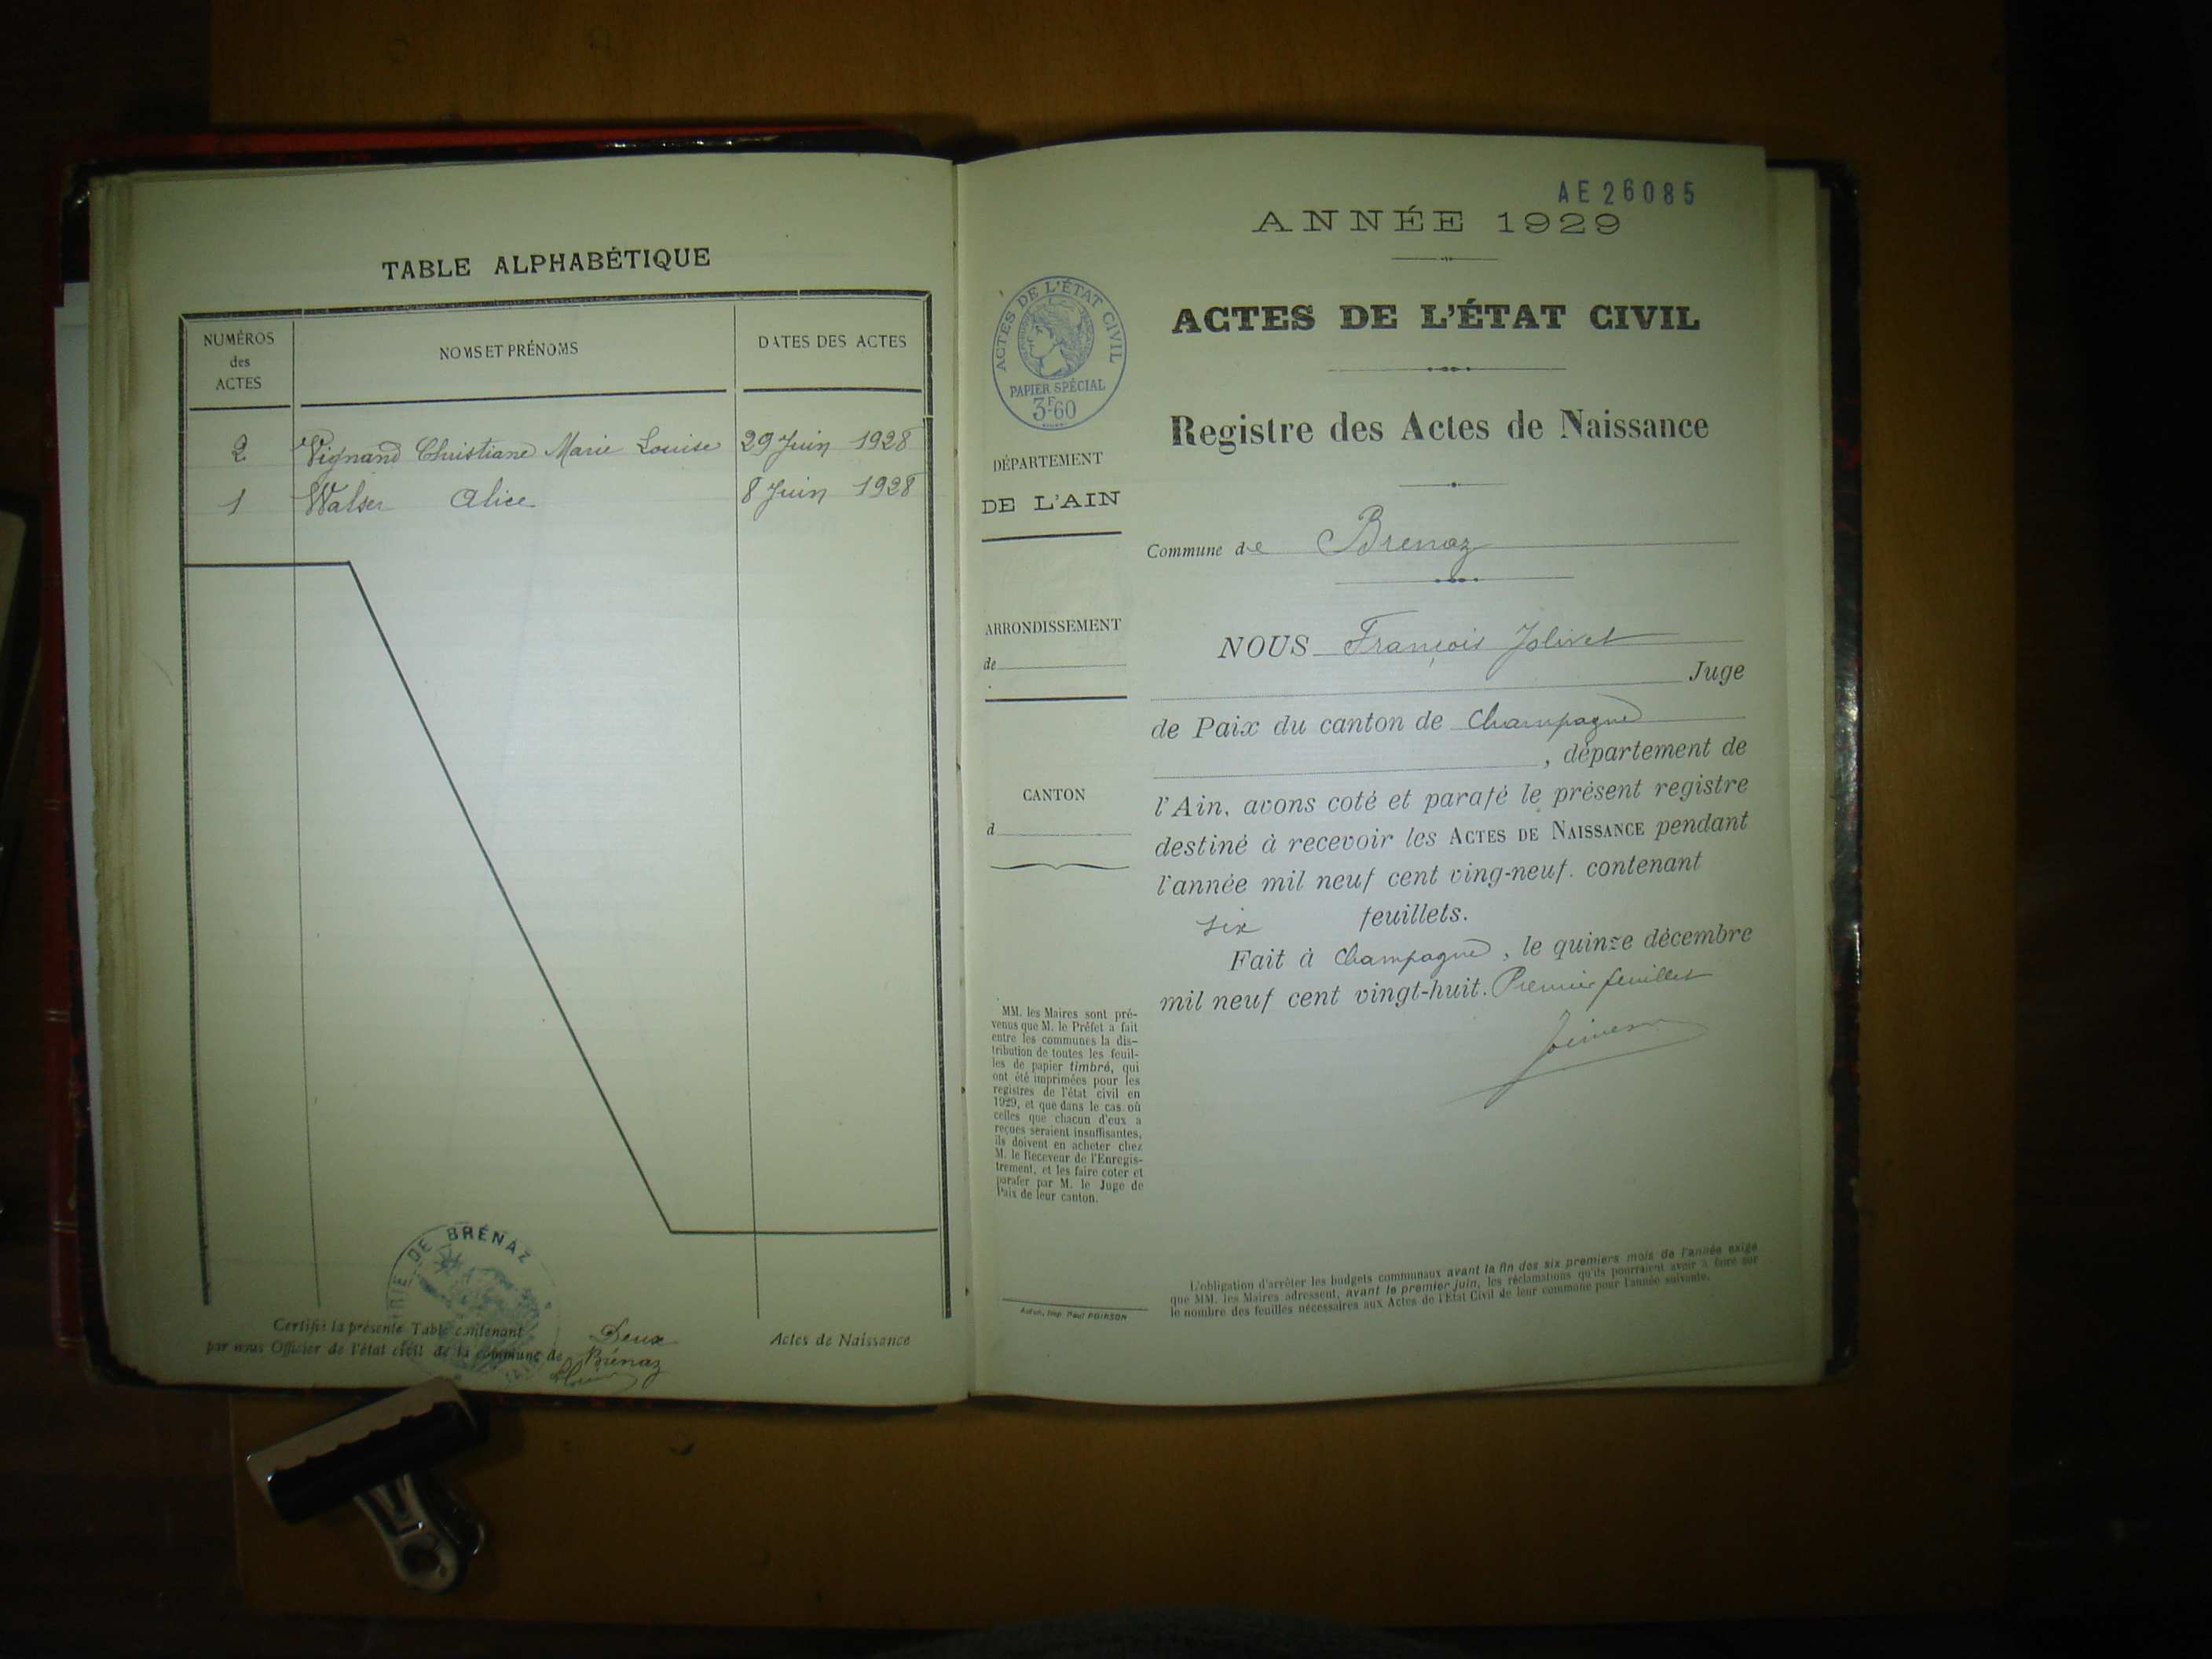 TABLE ALPHABÉTIQUE
NUMÉROS
des
ACTES
NOMS ET PRÉNOMS
DATES DES ACTES
2 Vignand Christiane Marie Louise 29 Juin 1928
1 Walser Alice 8 Juin 1928
MAIRIE DE BRÉNAZ
Certifié la présente Table contenant Deux Actes de Naissance
par nous Officier de l'état civil de la commune de Brénaz
AE 26085
ANNÉE 1929
ACTES DE L'ÉTAT CIVIL
PAPIER SPÉCIAL
3F60
ACTES DE L'ÉTAT CIVIL
Registre des Actes de Naissance
DÉPARTEMENT
DE L'AIN
Commune de Brenaz
ARRONDISSEMENT
de
NOUS François Jolivet
Juge
de Paix du canton de Champagne
, département de
CANTON
d
l'Ain, avons coté et parafé le présent registre
destiné à recevoir les ACTES DE NAISSANCE pendant
l'année mil neuf cent ving-neuf. contenant
six feuillets.
Fait à Champagne, le quinze décembre
mil neuf cent vingt-huit. Premier feuillet
MM. les Maires sont pré-
venus que M. le Préfet a fait
entre les communes la dis-
tribution de toutes les feuil-
les de papier timbré, qui
ont été imprimées pour les
registres de l'état civil en
1929, et que dans le cas où
celles que chacun d'eux a
reçues seraient insuffisantes,
ils doivent en acheter chez
M. le Receveur de l'Enregis-
trement, et les faire coter et
parafer par M. le Juge de
Paix de leur canton.
L'obligation d'arrêter les budgets communaux avant la fin des six premiers mois de l'année exige
que MM. les Maires adressent, avant le premier juin, les réclamations qu'ils pourraient avoir à faire sur
le nombre des feuilles nécessaires aux Actes de l'État Civil de leur commune pour l'année suivante.
Imp. Paul POIRSON